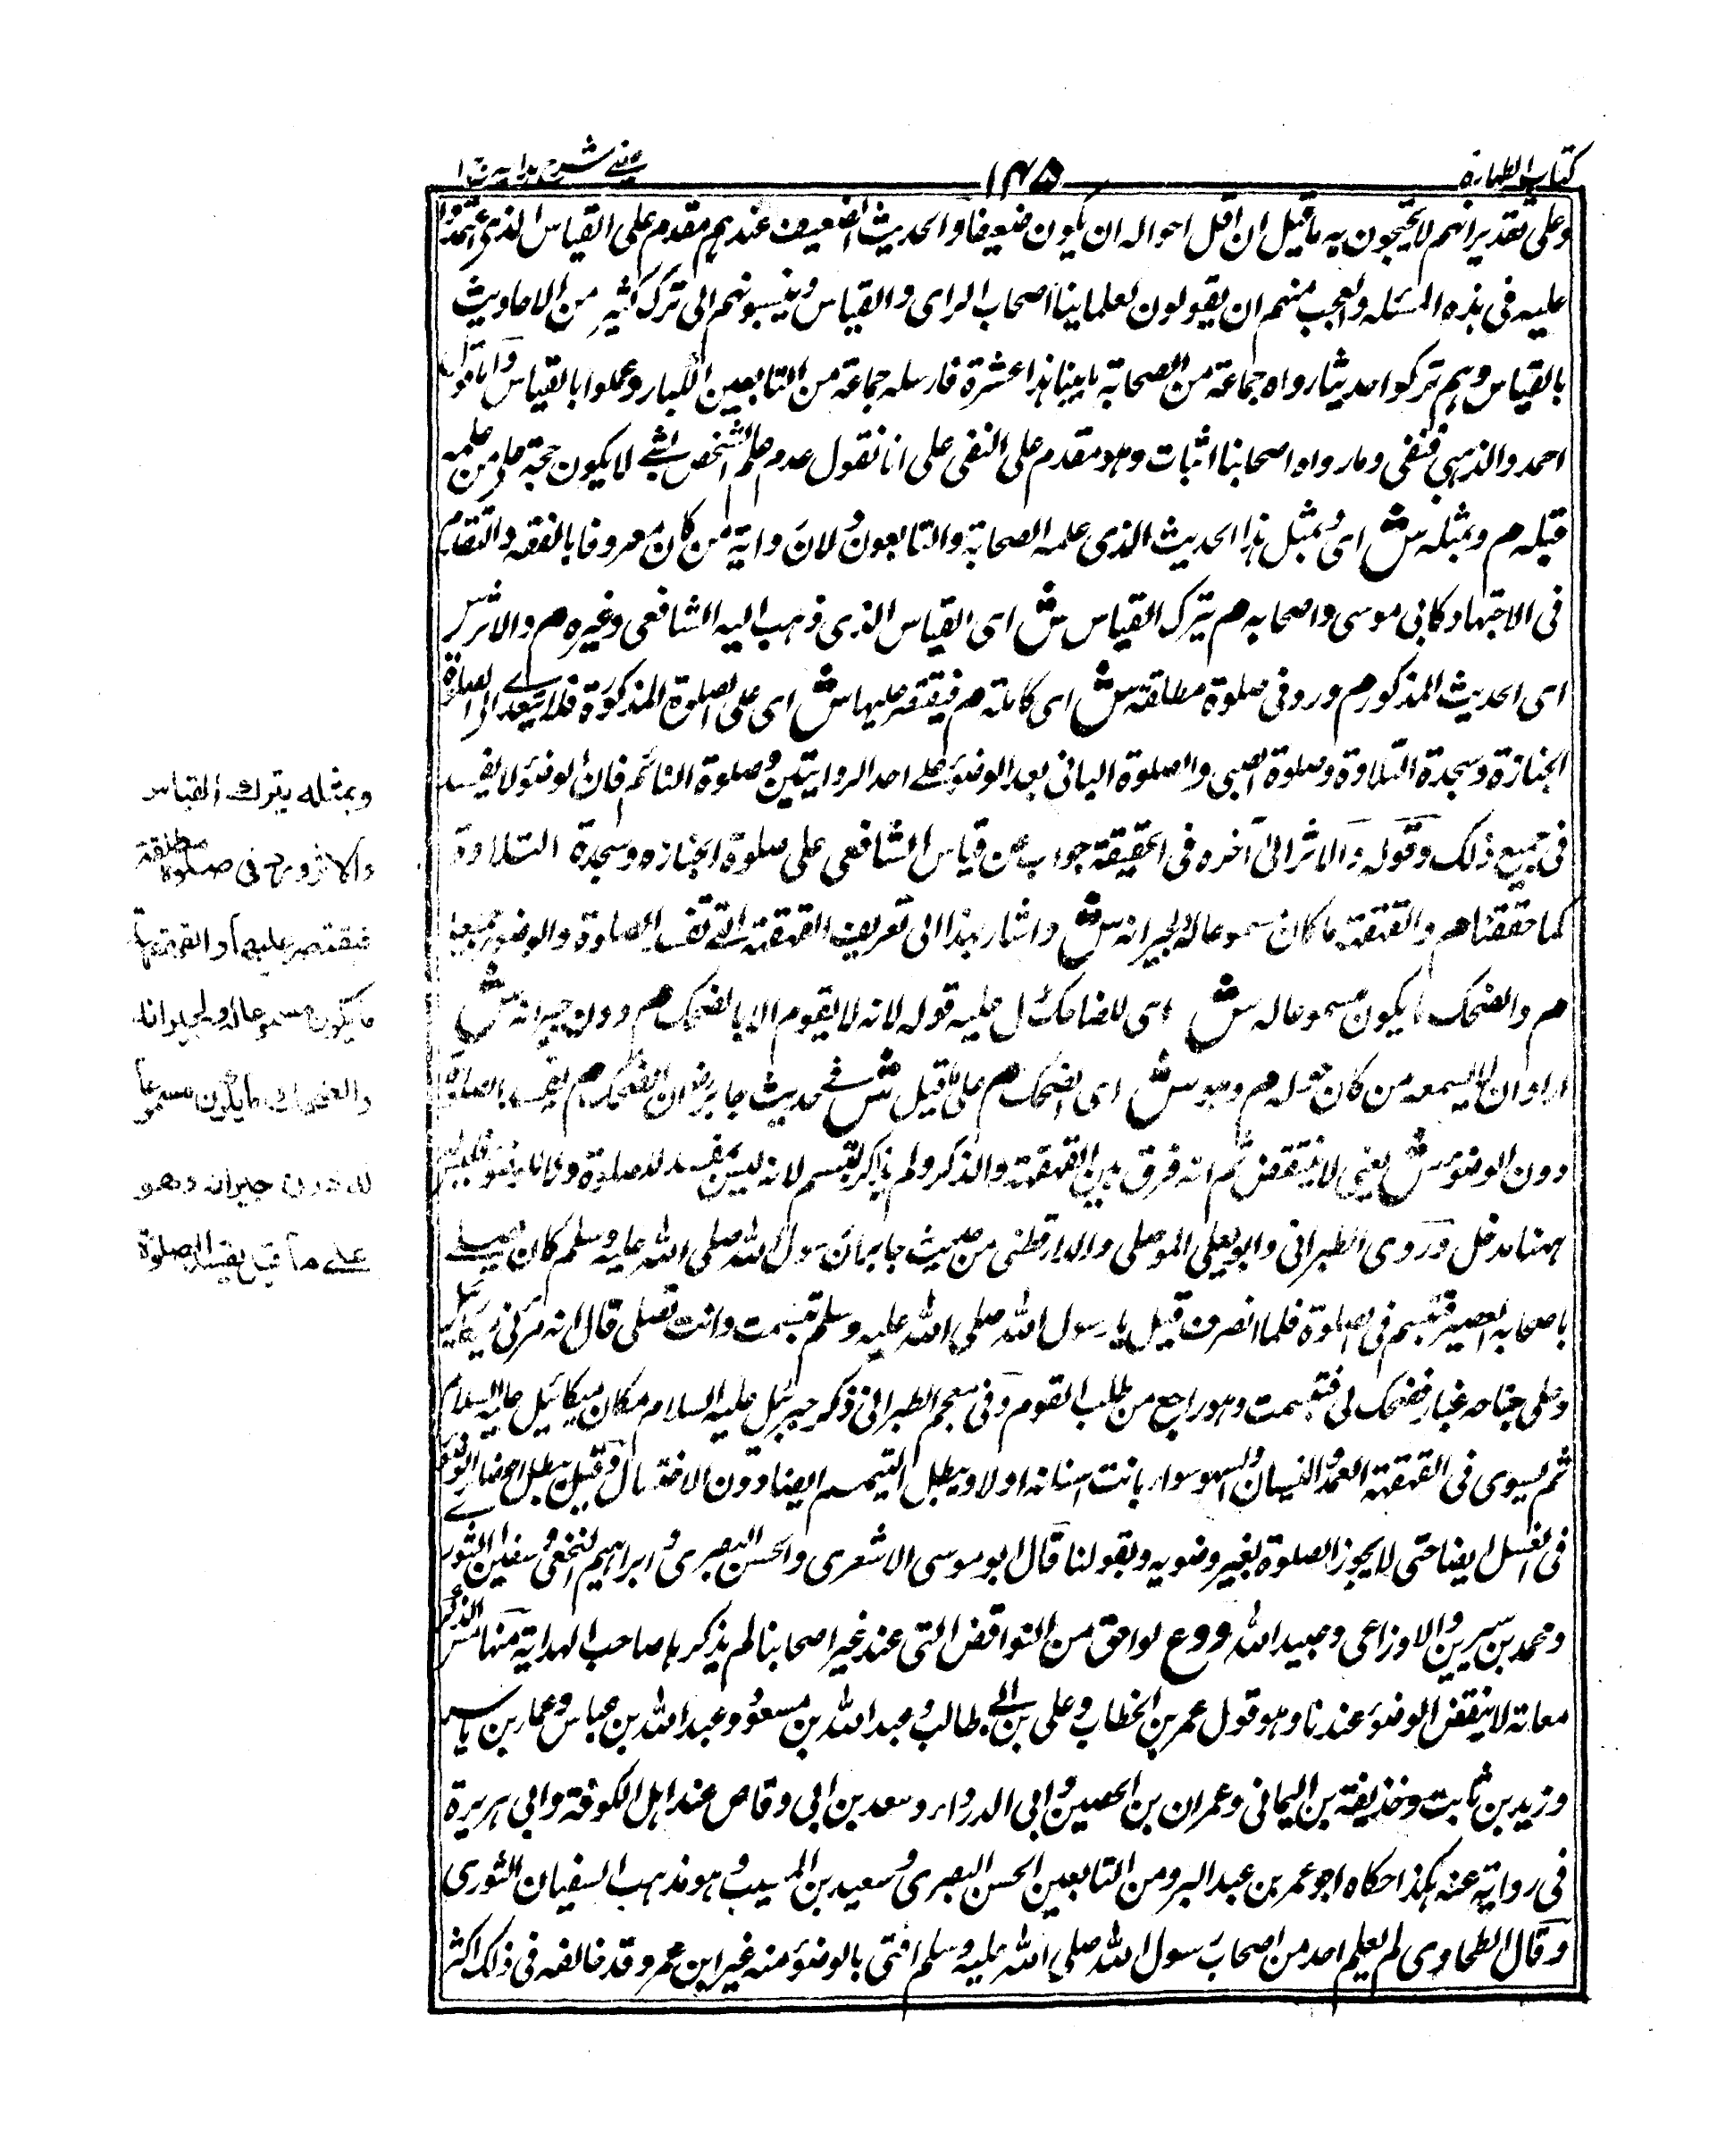 كتاب الطهارة
١٤٥
عينى شرح هدايه ج ١
وعلى تقدير انهم لا يحتجون به ما قيل ان اقل احواله ان يكون ضعيفا والحديث الضعيف عندهم مقدم على القياس الذى اعتمدوا
عليه فى هذه المسئله والعجب منهم ان يقولون لعلماينا اصحاب الراى والقياس وينسبونهم الى ترك كثير من الاحاديث
بالقياس وهم تركوا حديثا رواه جماعة من الصحابة ما بيننا هذا عشرة فارسله جماعة من التابعين الكبار وعملوا بالقياس واما قول
احمد والذهبى فنفى وما رواه اصحابنا اثبات وهو مقدم على النفى على انا نقول عدم علم الشخص لشے لا يكون حجة على من علمه
قبله م وبمثله ش اى بمثل هذا الحديث الذى علمه الصحابة والتابعون ولان رواية من كان معروفا بالفقه والتقدم
فى الاجتهاد كابى موسى واصحابه م يترك القياس ش اى القياس الذى ذهب اليه الشافعى وغيره م والاثر ش
اى الحديث المذكور م ورد فى صلوة مطلقة ش اى كاملة م فيقتصر عليها ش اى على الصلوة المذكورة فلا يتعدى الى الصلوة
الجنازة وسجدة التلاوة وصلوة الصبى والصلوة البانى بعد الوضوء على احد الروايتين وصلوة النائم فان الوضوء لا يفسد
فى جميع ذلك وقوله والاثر الى آخره فى الحقيقة جواب عن قياس الشافعى على صلوة الجنازه وسجدة التلاوة
كما حققناهم والقهقهة ما كان مسموعا له ولجيرانه ش واشار بهذا الى تعريف القهقهة التے تفسد الصلوة والوضوء جميعا
م والضحك ما يكون مسموعا له ش اى للضاحك دل عليه قوله لانه لا يقوم الا بالضحك م دون جيرانه ش
اراد ان لا يسمعه من كان حوله م وهو ش اى الضحك م على ما قيل ش فے حديث جابر رض ان الضحك م يفسد الصلوة
دون الوضوء ش يعنى لا ينتقض ثم انه فرق بين القهقهة والذكر ولم يذكر التبسم لانه ليس بمفسد للصلوة ولا للوضوء فليس له
ههنا مدخل وروى الطبرانى وابو يعلى الموصلى والدارقطنى من حديث جابر ان رسول الله صلى الله عليه وسلم كان يصلے
باصحابه العصر فتبسم فى الصلوة فلما انصرف قيل يا رسول الله صلى الله عليه وسلم تبسمت وانت تصلى قال انه مر بى ميكائيل
وعلى جناحه غبار فضحك لى فتبسمت وهو راجع من طلب القوم وفى معجم الطبرانى ذكر جبرئيل عليه السلام مكان ميكائيل عليه السلام
ثم يسوى فى القهقهة العمد والنسيان والسهو سواء بانت اسنانه اولا ويبطل التيمم ايضا دون الاغتسال وقيل يبطل اعضاء الوضوء
فى الغسل ايضا حتى لا يجوز الصلوة بغير وضويه وبقولنا قال ابو موسى الاشعرى والحسن البصرى وابراهيم النخعى وسفيان الثورى
ومحمد بن سيرين والاوزاعى وعبيد الله ووع لواحق من النواقض التى عند غير اصحابنا لم يذكرها صاحب الهداية منها مس الذكر
معانه لا ينقض الوضوء عندنا وهو قول عمر بن الخطاب وعلى بن ابى طالب وعبد الله بن مسعود وعبد الله بن عباس وعمار بن ياسر
وزيد بن ثابت وحذيفة بن اليمانى وعمران بن الحصين وابى الدرداء وسعد بن ابى وقاص عند اهل الكوفة وابى هريرة
فى رواية عنه هكذا حكاه ابو عمر بن عبد البر ومن التابعين الحسن البصرى وسعيد بن المسيب وهو مذهب السفيان الثورى
وقال الطحاوى لم يعلم احد من اصحاب رسول الله صلى الله عليه وسلم افتى بالوضوء منه غير ابن عمر وقد خالفه فى ذلك اكثر
وبمثله يترك القياس
والاثر ورد فى صلوة مطلقة
فيقتصر عليها والقهقهة
ما يكون مسموعا له ولجيرانه
والضحك ما يكون مسموعا
له دون جيرانه وهو
على ما قيل يفسد الصلوة